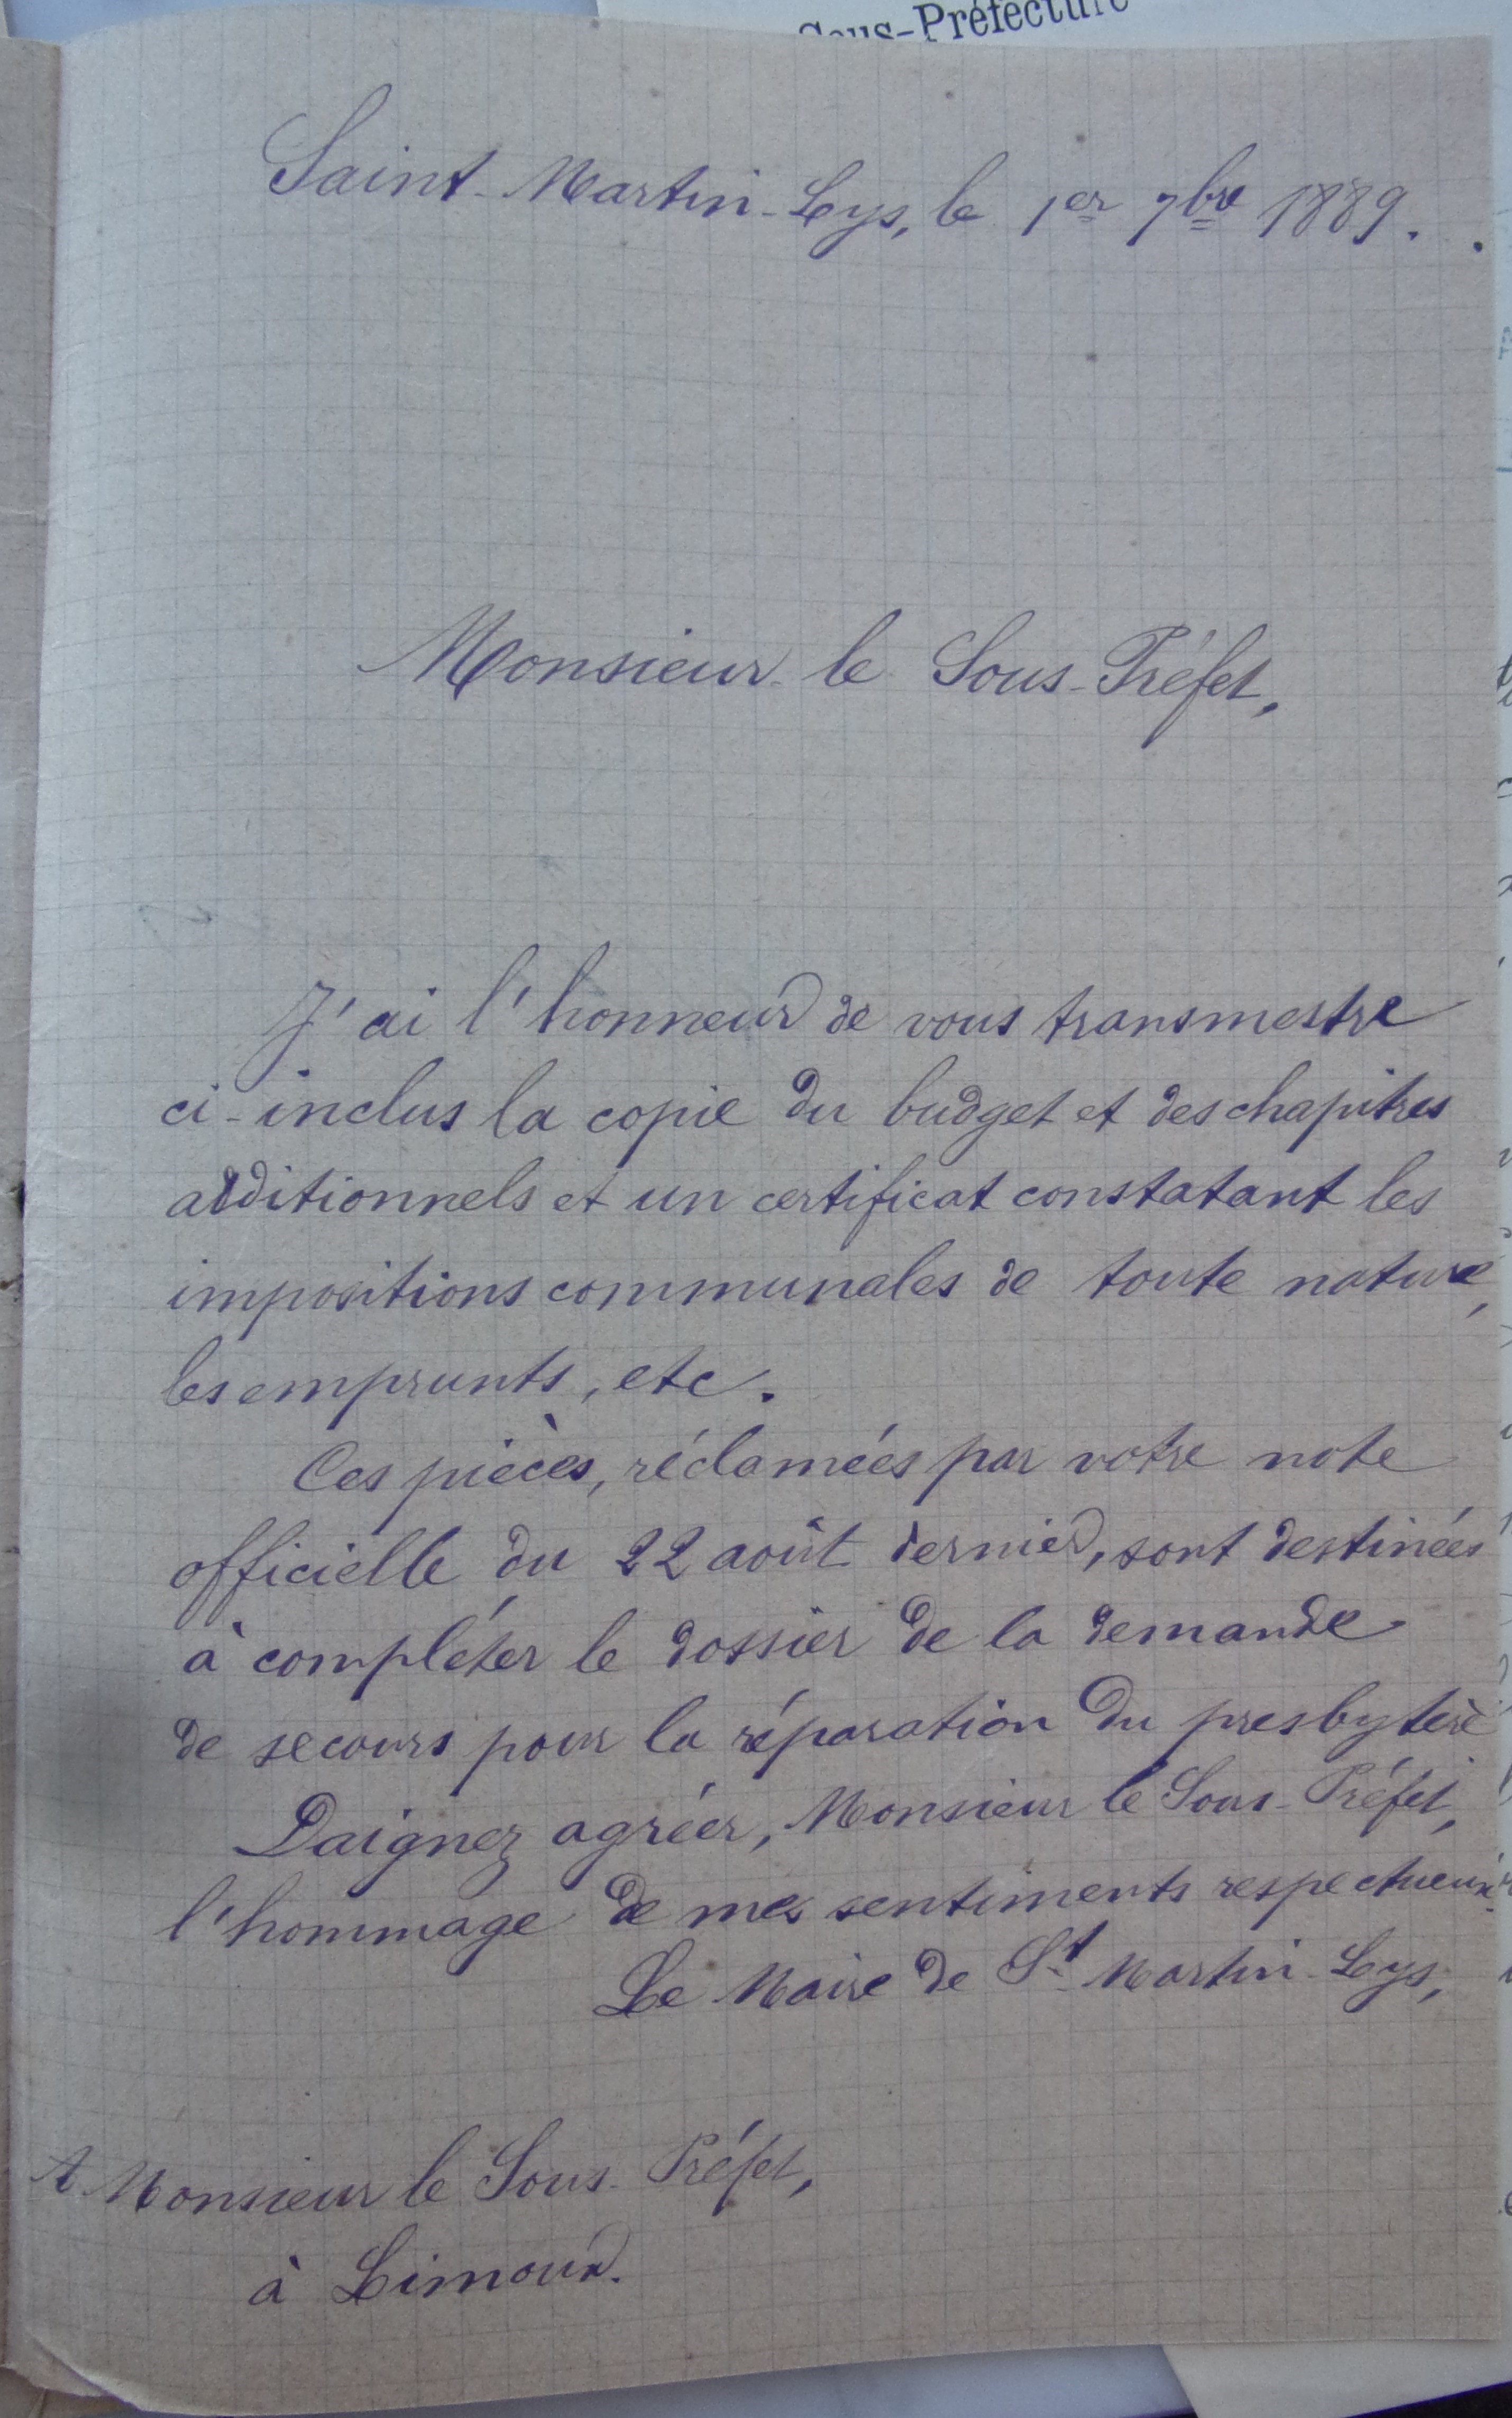 Sous-Préfecture
Saint-Martin-Lys, le 1er 7bre 1889.
Monsieur le Sous-Préfet,
J'ai l'honneur de vous transmettre
ci-inclus la copie du budget et des chapitres
additionnels et un certificat constatant les
impositions communales de toute nature,
les emprunts, etc.
Ces pièces, réclamées par votre note
officielle du 22 août dernier, sont destinées
à compléter le dossier de la demande
de secours pour la réparation du presbytère
Daignez agréer, Monsieur le Sous-Préfet,
l'hommage de mes sentiments respectueux.
Le Maire de St Martin-Lys,
A Monsieur le Sous-Préfet,
à Limoux.